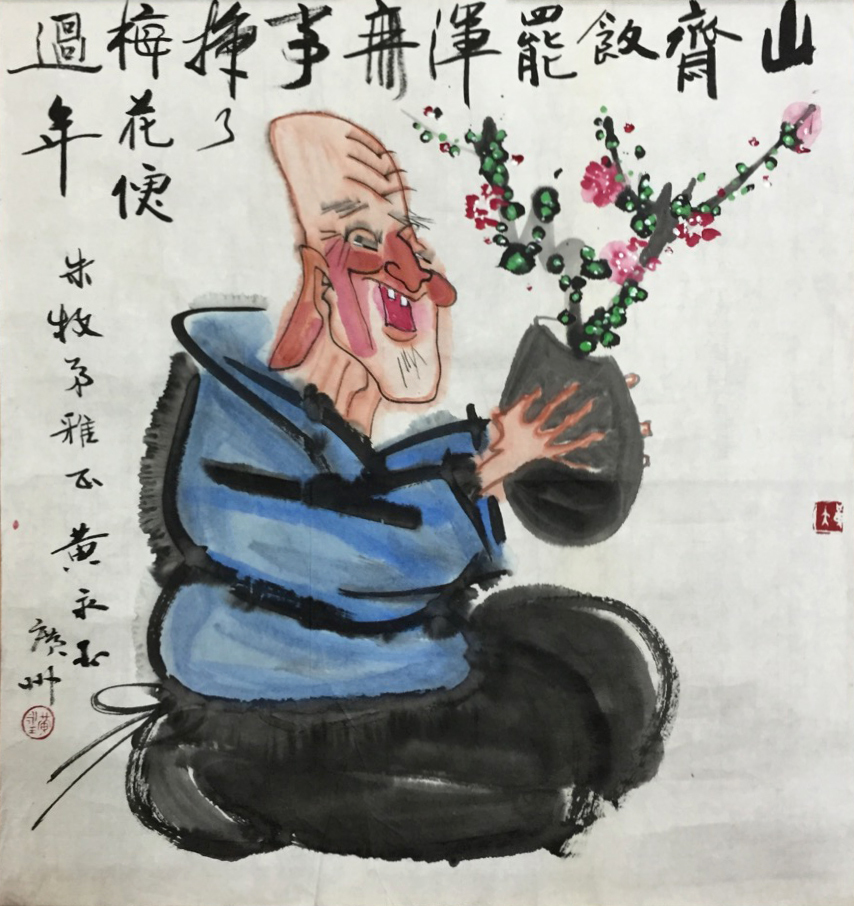 山齋飯罷渾無事插了梅花便過年
朱牧弟雅正 黃永玉
廣州